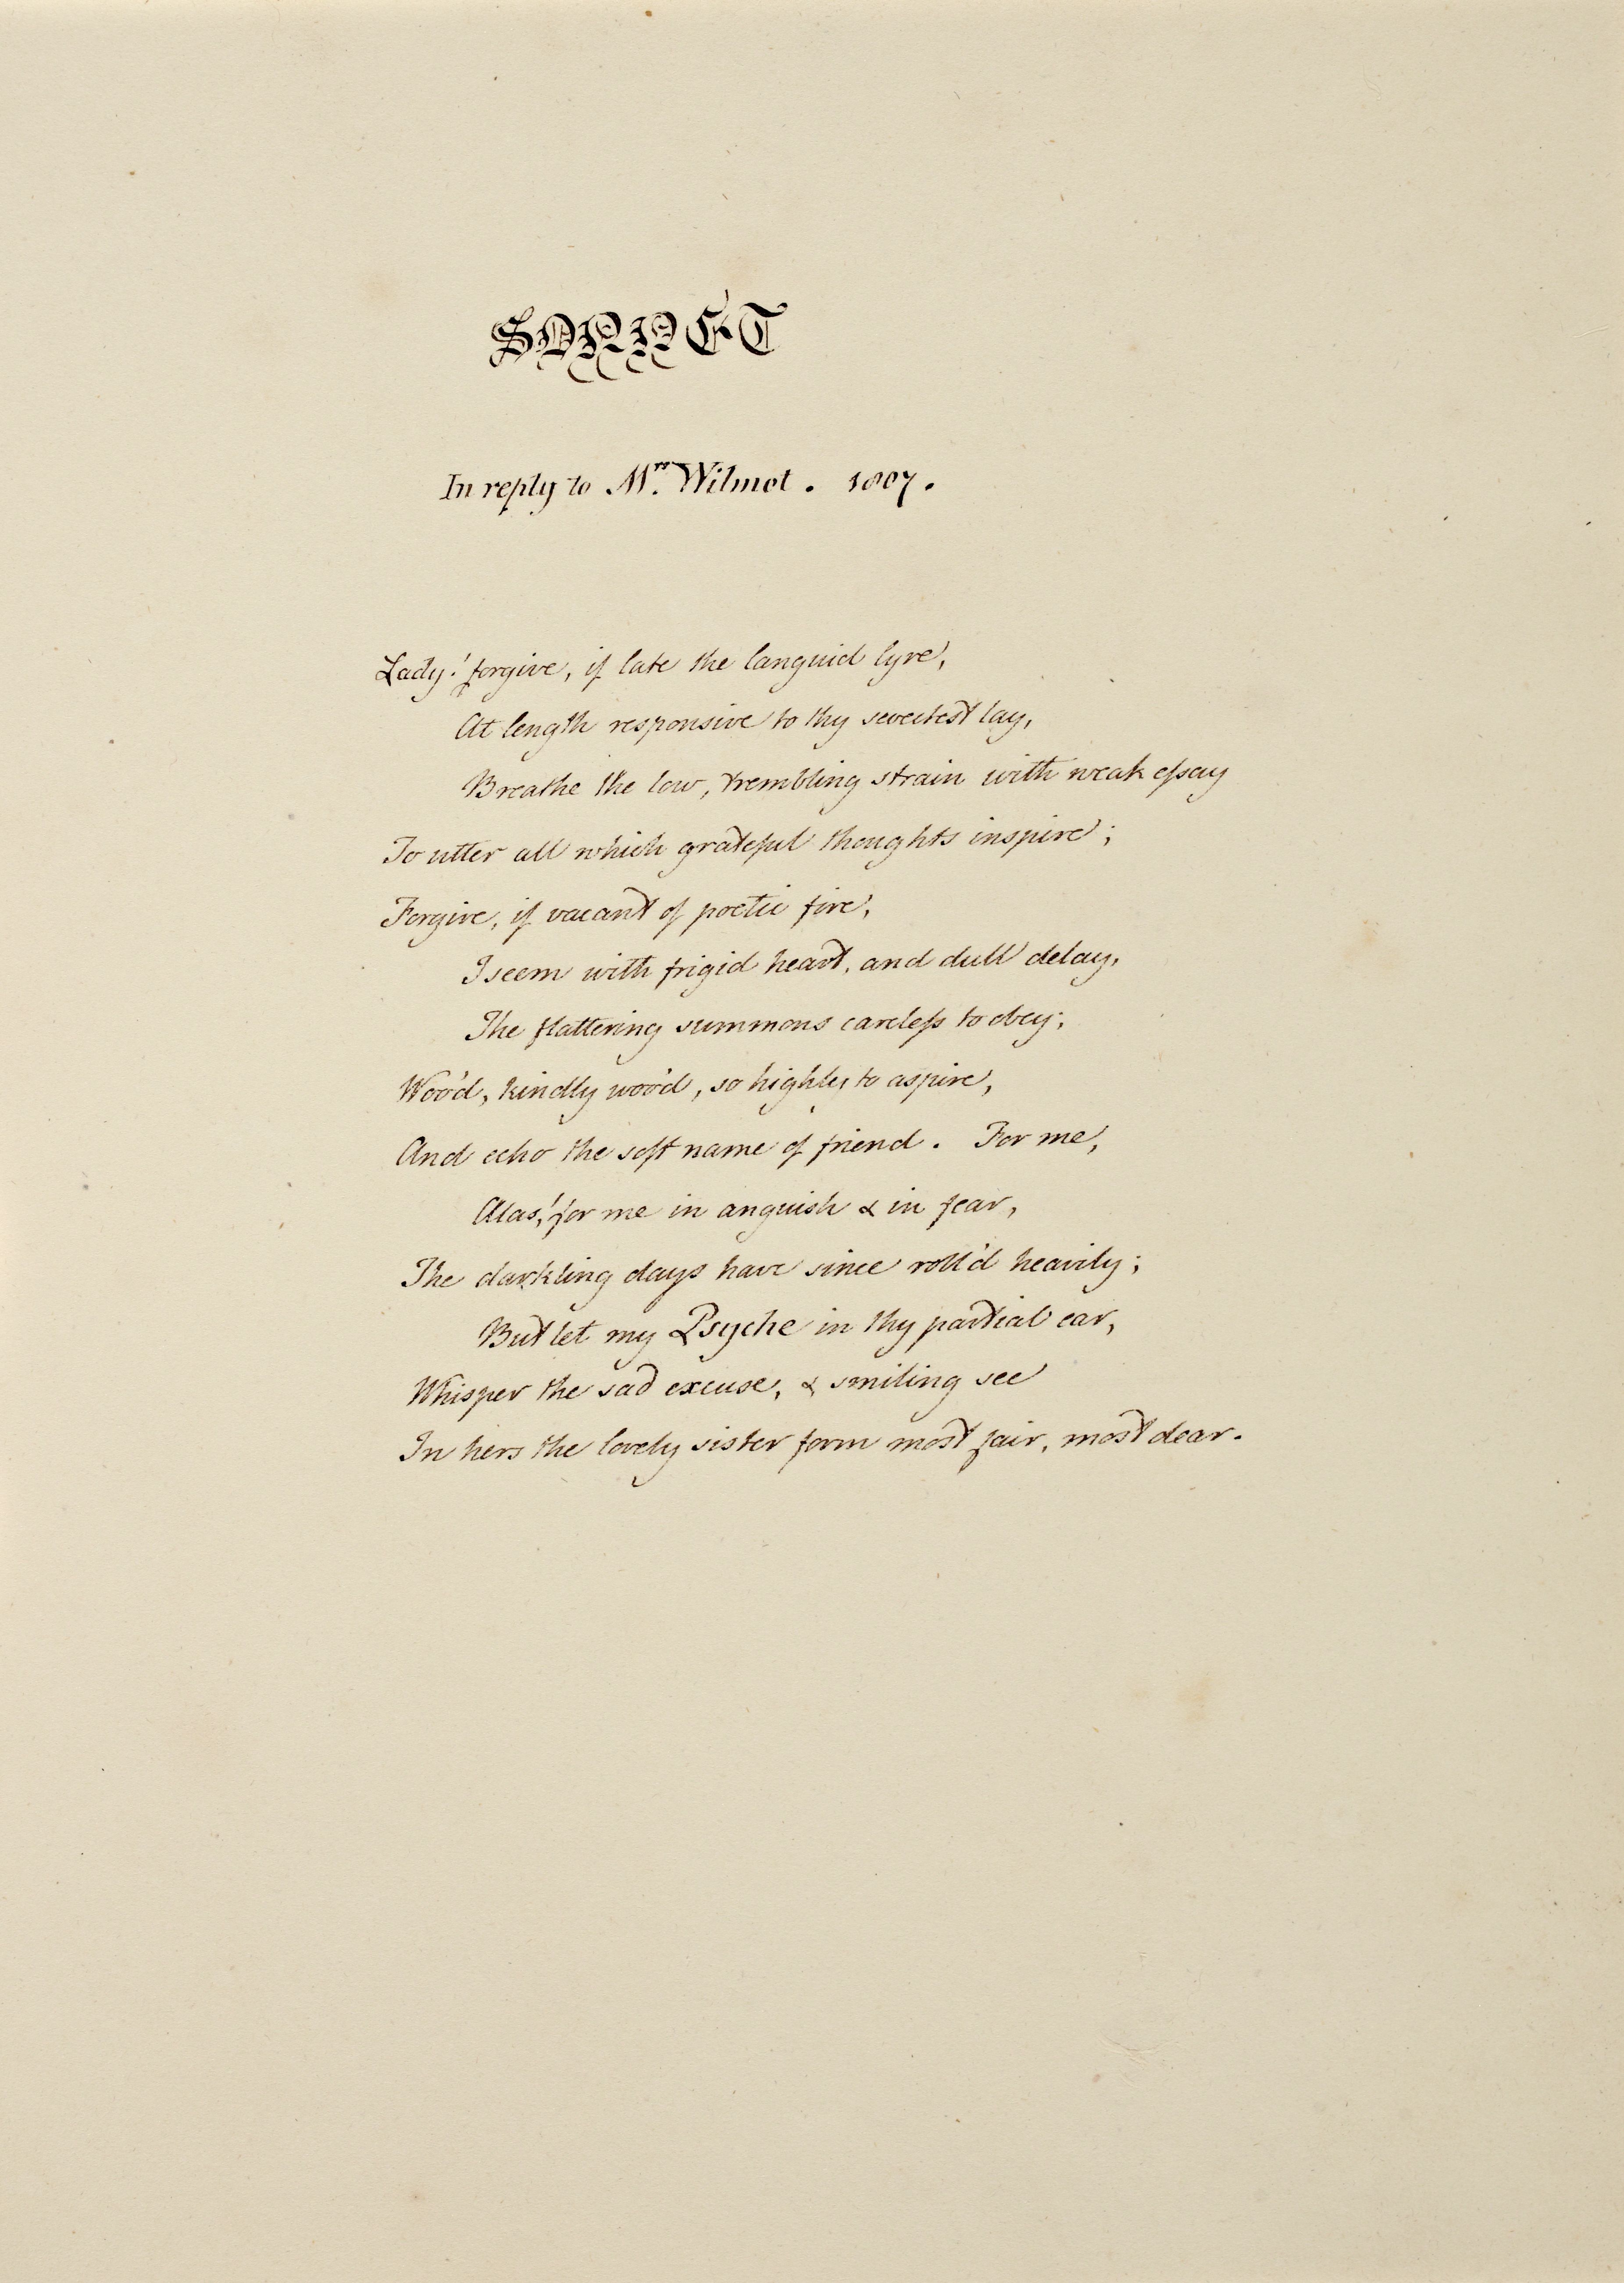 SONNET
In reply to Mrs. Wilmot. 1807.
Lady! forgive, if late the languid lyre,
At length responsive to thy sweetest lay,
Breathe the low, trembling strain with weak eſsay
To utter all which grateful thoughts inspire;
Forgive, if vacant of poetic fire,
I seem with frigid heart, and dull delay,
The flattering summons careleſs to obey;
Woo'd, kindly woo'd, so highly to aspire,
And echo the soft name of friend. For me,
Alas! for me in anguish & in fear,
The darkling days have since roll'd heavily;
But let my Psyche in thy partial ear,
Whisper the sad excuse, & smiling see
In hers the lovely sister form most fair, most dear.